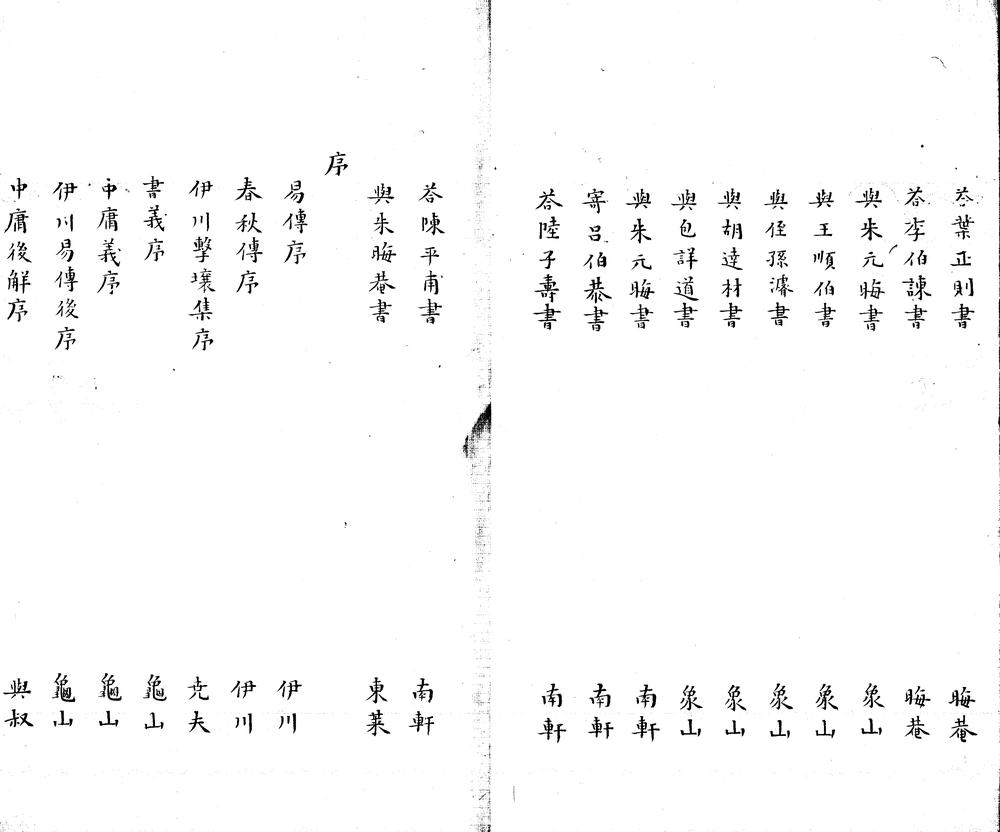 荅葉正則書 晦菴
荅李伯諫書 晦菴
與朱元晦書 象山
與王順伯書 象山
與侄孫濬書 象山
與胡達材書 象山
與包詳道書 象山
與朱元晦書 南軒
寄呂伯恭書 南軒
荅陸子壽書 南軒
荅陳平甫書 南軒
與朱晦菴書 東萊
序
易傳序 伊川
春秋傳序 伊川
伊川擊壤集序 尭夫
書義序 龜山
中庸義序 龜山
伊川易傳後序 龜山
中庸後解序 與叔